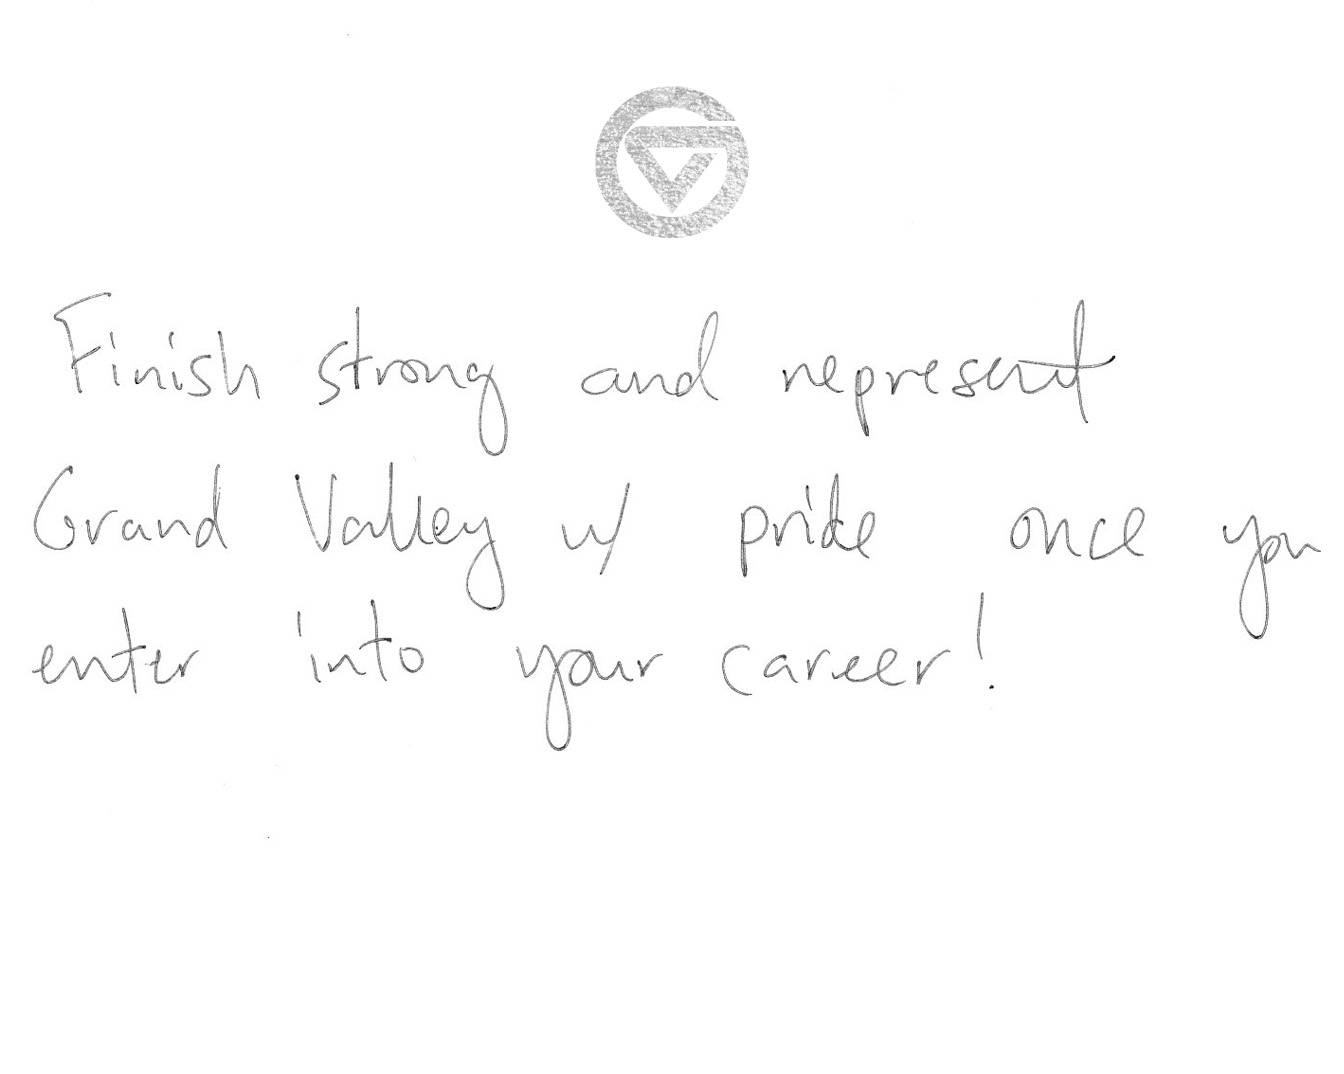 Finish strong and represent
Grand Valley w/ pride once you
enter into your career!